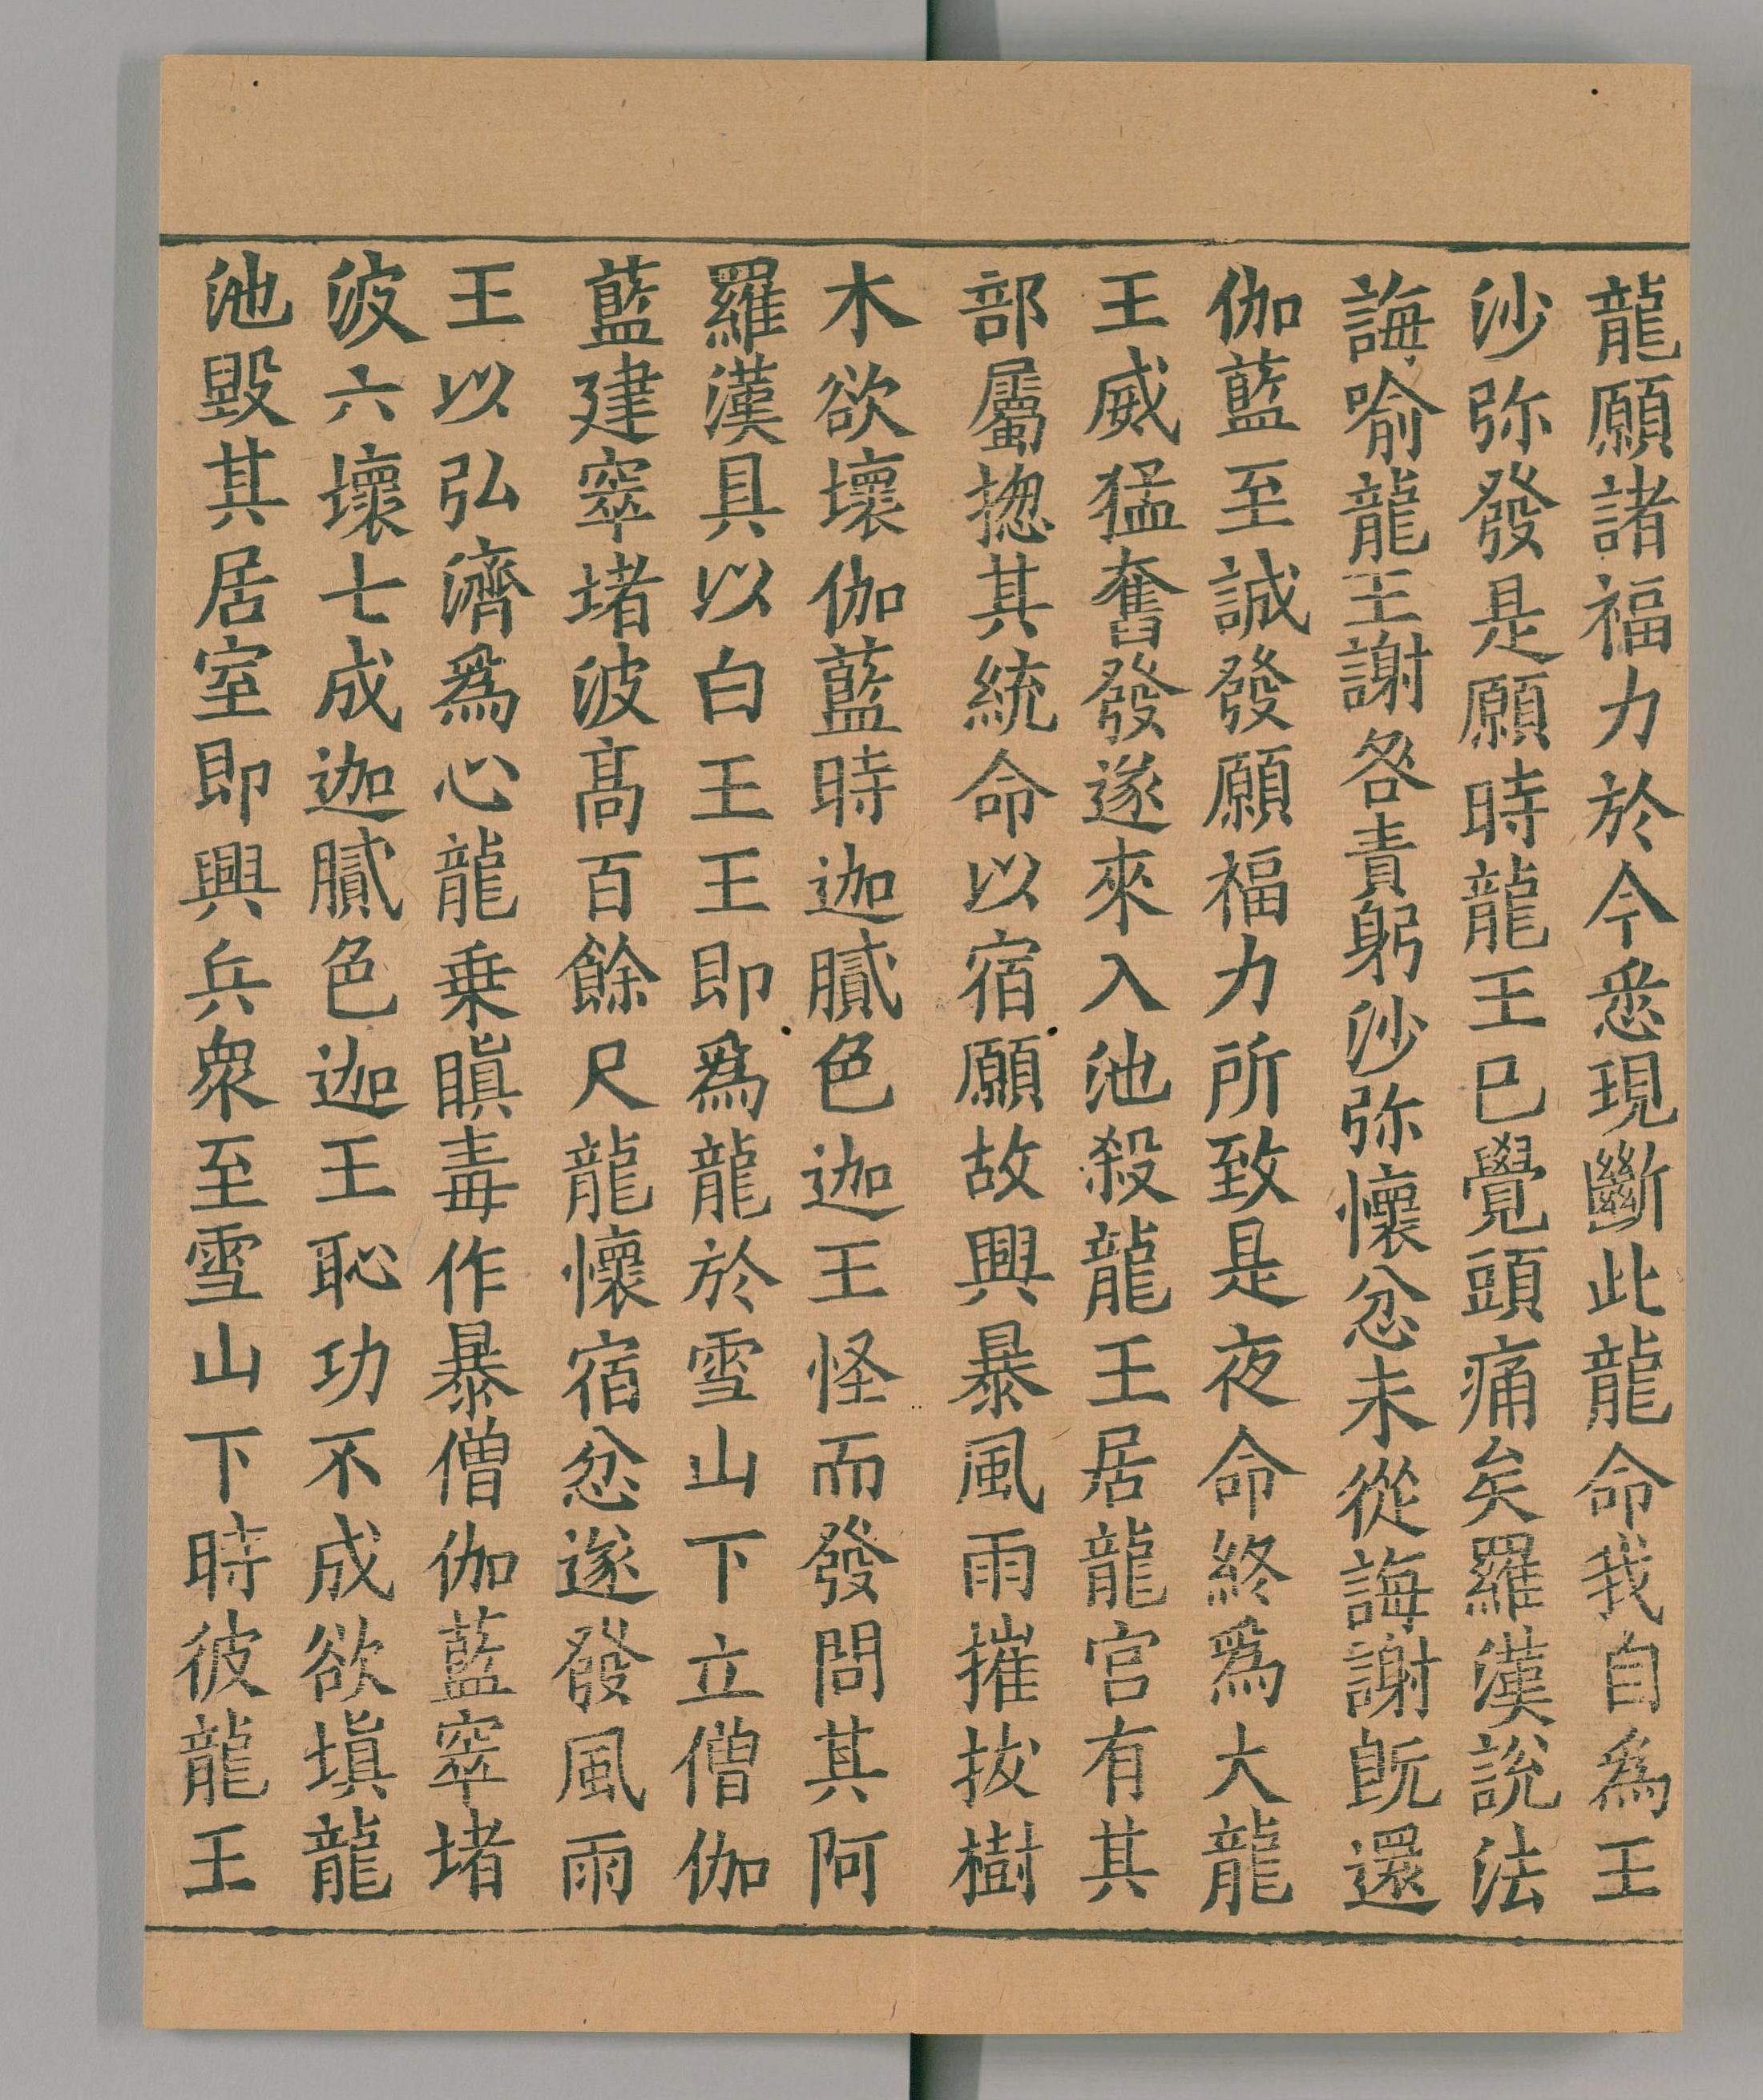 龍願諸福力於今悉現斷此龍命我自為王
沙弥發是願時龍王已覺頭痛矣羅漢說法
誨喻龍王謝咎責躬沙弥懷忿未從誨謝既還
伽藍至誠發願福力所致是夜命終爲大龍
王威猛奮發遂來入池殺龍王居龍宮有其
部屬揔其統命以宿願故興暴風雨摧拔樹
木欲壞伽藍時迦膩色迦王怪而發問其阿
羅漢具以白王王即爲龍於雪山下立僧伽
藍建窣堵波高百餘尺龍懷宿忿遂發風雨
王以弘濟爲心龍乗瞋毒作暴僧伽藍窣堵
波六壞七成迦膩色迦王恥功不成欲塡龍
池毀其居室即興兵衆至雪山下時彼龍王